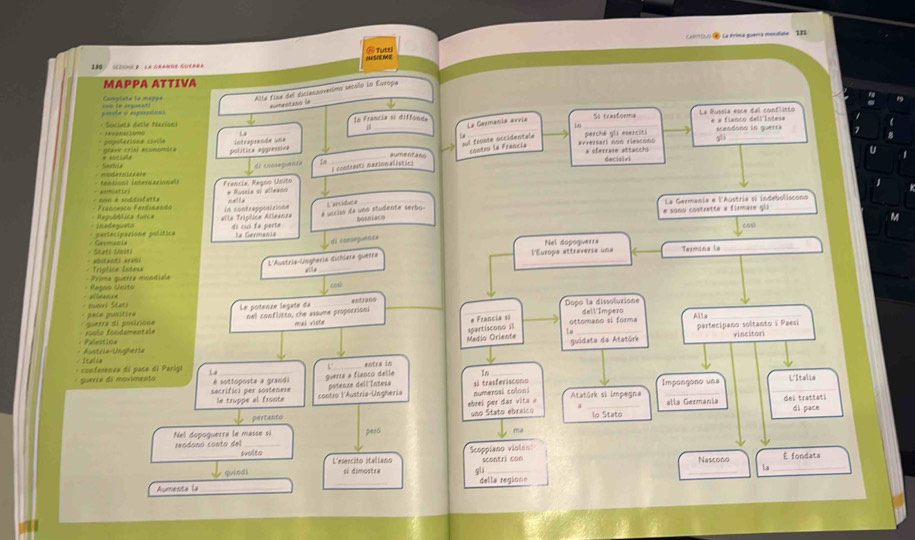 130 SEZIONE 2 LA GRANDE GUERRA
Tutti
INSIEME
MAPPA ATTIVA
Completa la mappa
con le seguenti
parole o espressioni
- Società delle Nazioni
- revanscismo
- popolazione civile
- grave crisi economica
e sociale
- Serbia
- modernizzare
- tensioni internazionali
- armistizi
- non è soddisfatta
- Francesco Ferdinando
- Repubblica turca
- inadeguato
- partecipazione politica
- Germania
- Stati Uniti
- abitanti arabi
- Triplice Intesa
- Prima guerra mondiale
- Regno Unito
- alleanze
- nuovi Stati
- pace punitiva
- guerra di posizione
- ruolo fondamentale
- Palestina
- Austria-Ungheria
- Italia
- conferenza di pace di Parigi
- guerra di movimento
Alla fine del diciannovesimo secolo in Europa
aumentano le
La
intraprende una
politica aggressiva
In Francia si diffonde
il
di conseguenza
In
aumentano
i contrasti nazionalistici
Francia, Regno Unito
e Russia si alleano
nella
in contrapposizione
alla Triplice Alleanza
di cui fa parte
la Germania
L'arciduca
è ucciso da uno studente serbo-
bosniaco
di conseguenza
L'Austria-Ungheria dichiara guerra
alla
così
Le potenze legate da entrano
nel conflitto, che assume proporzioni
mai viste
La
è sottoposta a grandi
sacrifici per sostenere
le truppe al fronte
L' entra in
guerra a fianco delle
potenze dell'Intesa
contro l'Austria-Ungheria
pertanto
Nel dopoguerra le masse si
rendono conto del
svolto
però
L'esercito italiano
si dimostra
quindi
Aumenta la
CAPITOLO 4 La Prima guerra mondiale 131
La Germania avvia
la
sul fronte occidentale
contro la Francia
Si trasforma
in
perché gli eserciti
avversari non riescono
a sferrare attacchi
decisivi
La Russia esce dal conflitto
e a fianco dell'Intesa
scendono in guerra
gli
La Germania e l'Austria si indeboliscono
e sono costrette a firmare gli
così
Nel dopoguerra
l'Europa attraversa una
Termina la
e Francia si
spartiscono il
Medio Oriente
Dopo la dissoluzione
dell'Impero
ottomano si forma
la
guidata da Atatürk
Alla
partecipano soltanto i Paesi
vincitori
In
si trasferiscono
numerosi coloni
ebrei per dar vita a
uno Stato ebraico
Atatürk si impegna
a
lo Stato
Impongono una
alla Germania
L'Italia
dei trattati
di pace
ma
Scoppiano violenti
scontri con
gli
della regione
Nascono
È fondata
la